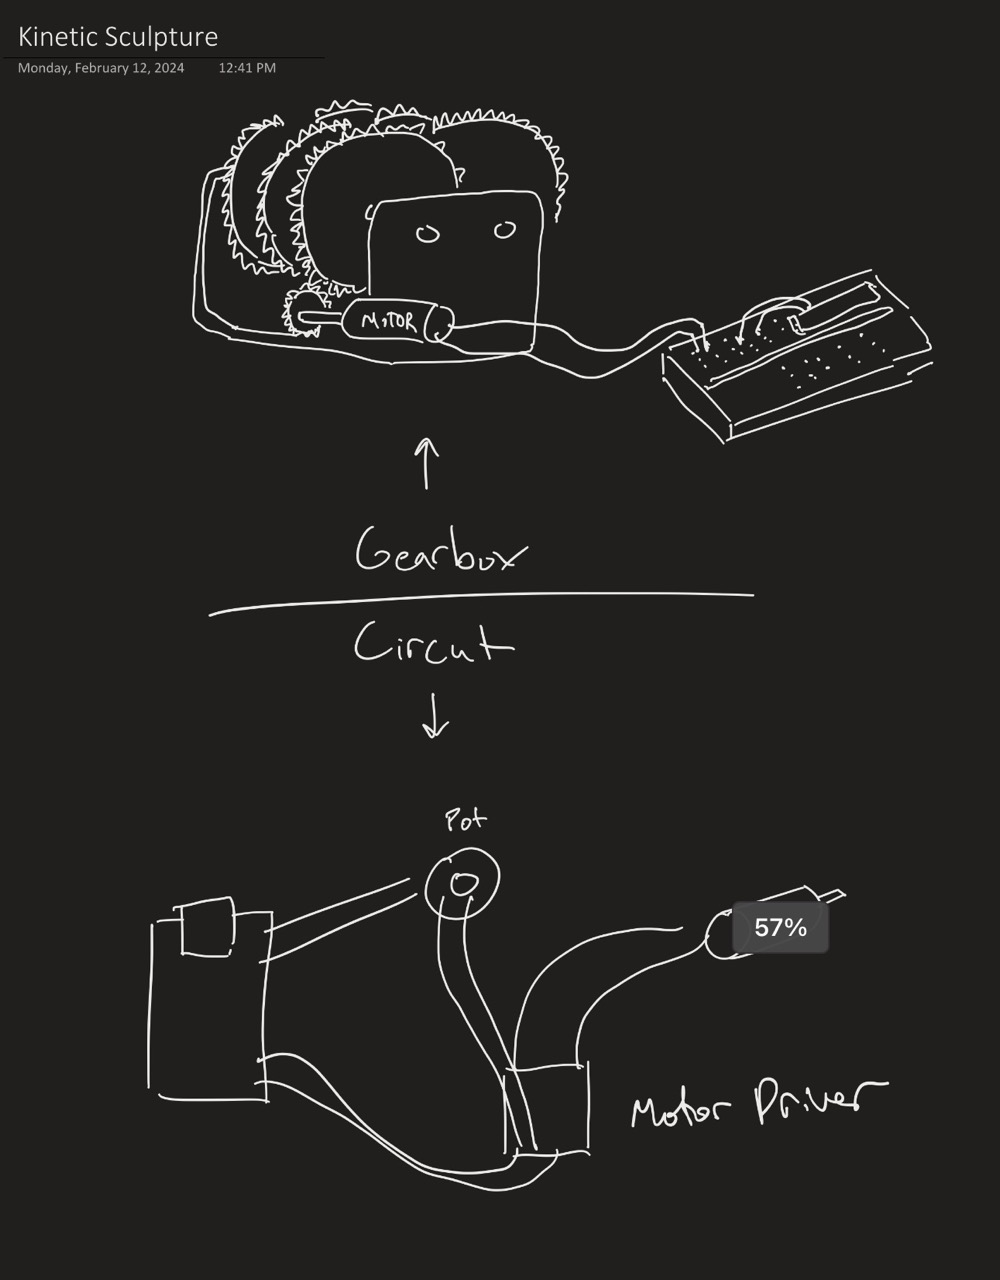 Kinetic Sculpture
Monday, February 12, 2024 12:41 PM
MOTOR
Gearbox
Circut
Pot
57%
Motor Driver